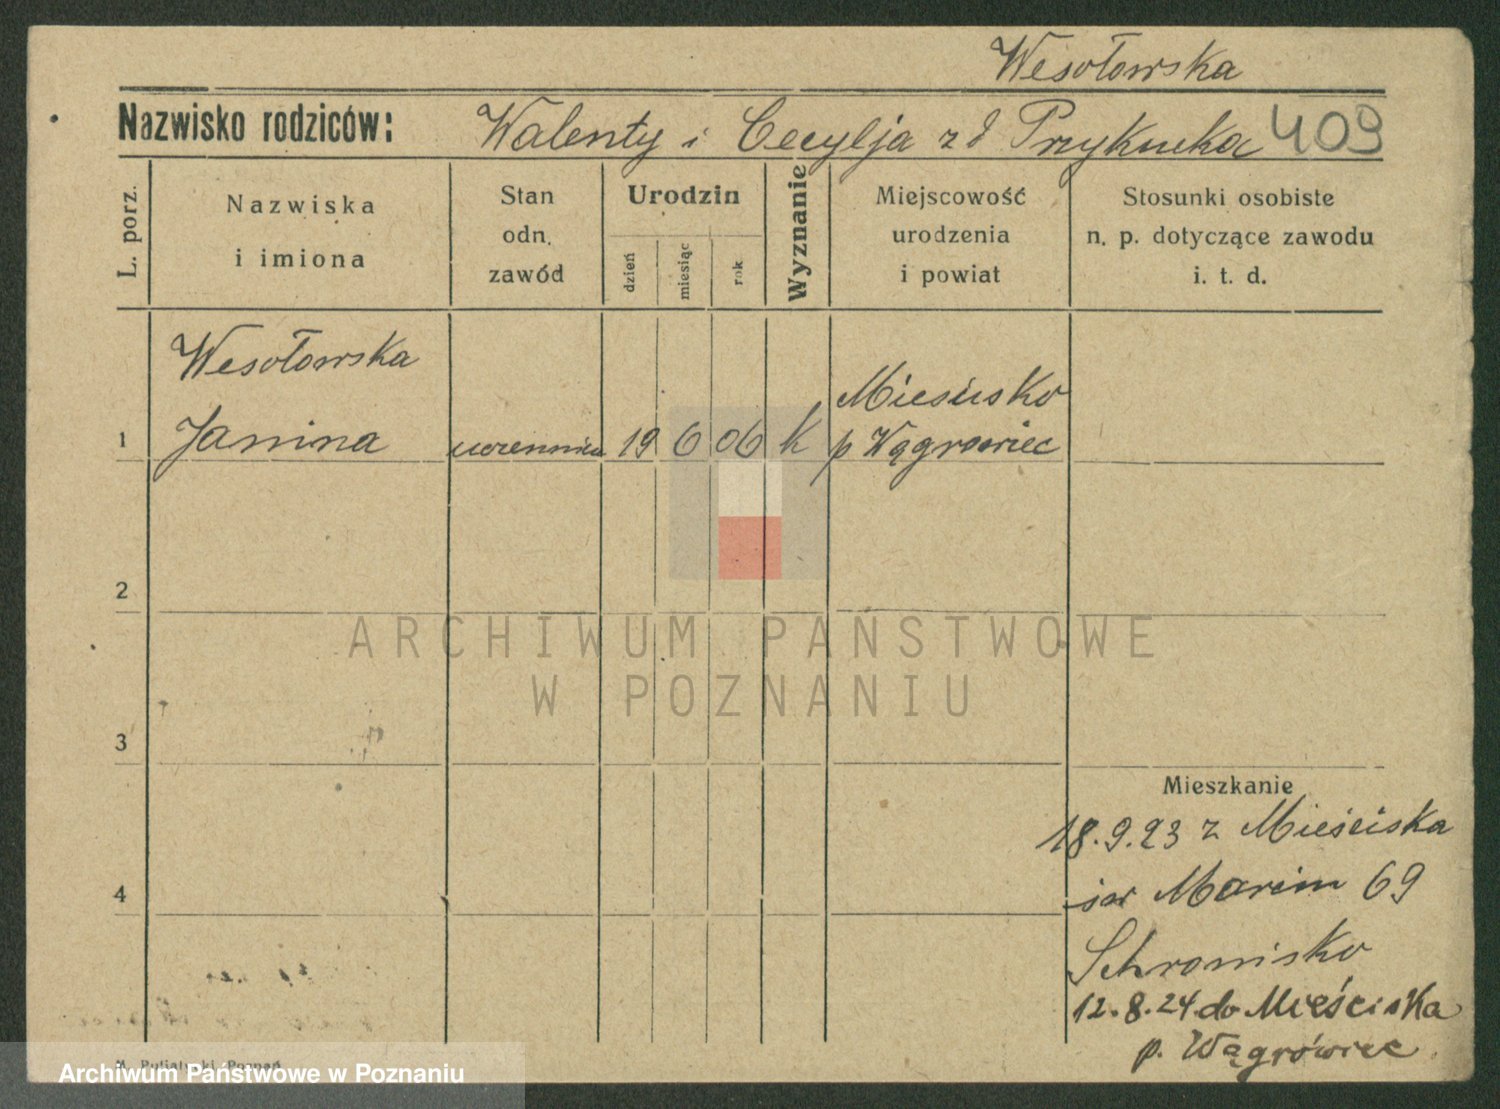 Wesołowska
Nazwisko rodziców: Walenty i Cecylja z d Przykucka 409
L. porz.
Nazwiska
i imiona
Stan
odn.
zawód
Urodzin
dzień
miesiąc
rok
Wyznanie
Miejscowość
urodzenia
i powiat
Stosunki osobiste
n. p. dotyczące zawodu
i. t. d.
Wesołowska
Mieścisko
1 Janina uczennica 19 6 06 k p Wągrowiec
2
ARCHIWUM PAŃSTWOWE
W POZNANIU
3
Mieszkanie
18.9.23 z Mieściska
4
św Marcin 69
Schronisko
12.8.24 do Mieściska
p. Wągrówiec
Poznań
Archiwum Państwowe w Poznaniu